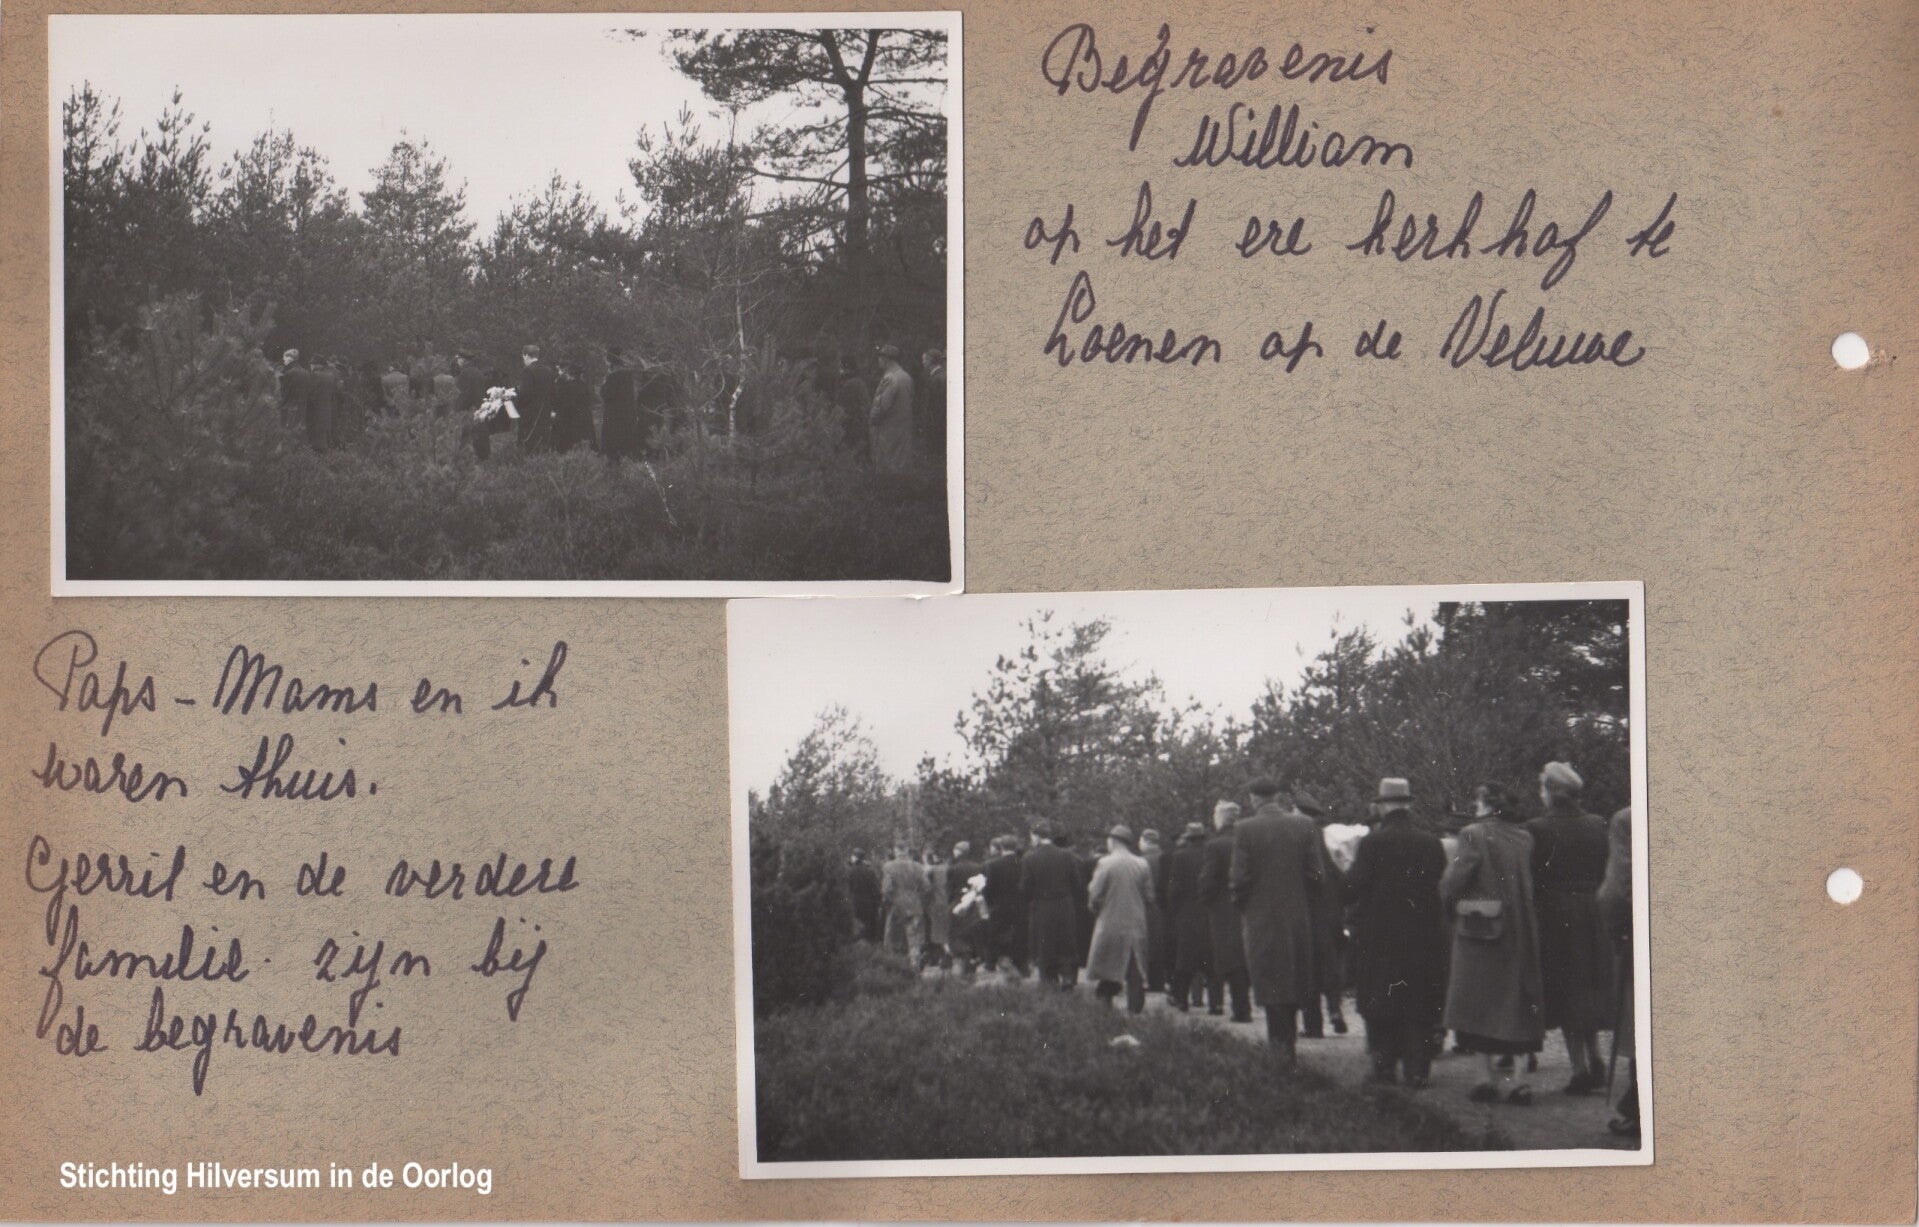 Begravenis
William
op het ere kerkhof te
Loenen op de Veluwe
Paps - Mams en ik
waren thuis.
Gerrit en de verdere
familie. zijn bij
de begravenis
Stichting Hilversum in de Oorlog